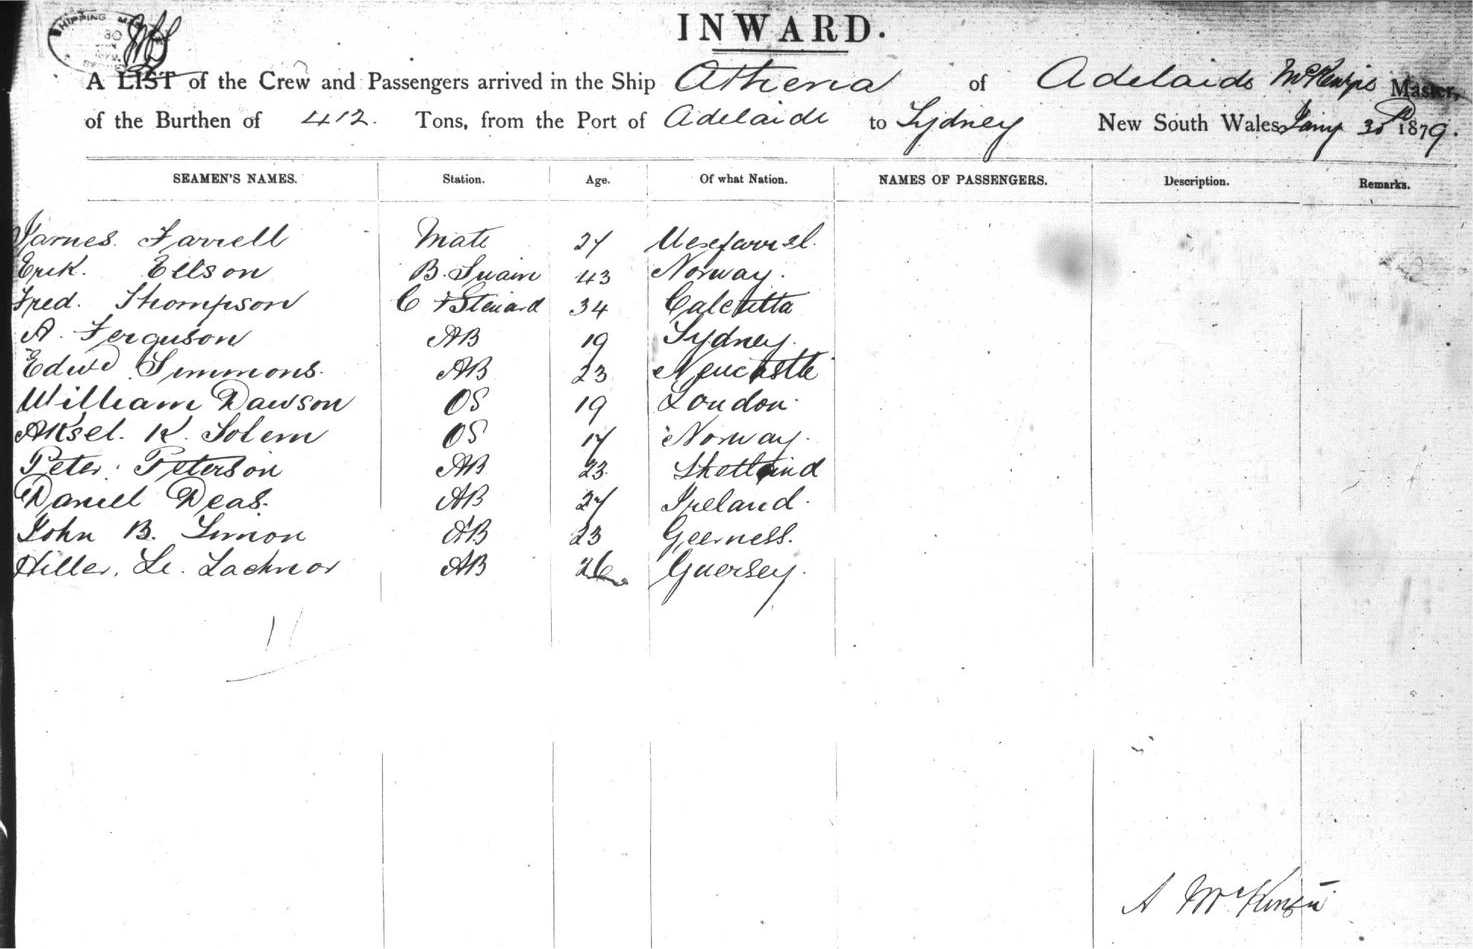 SHIPPING MAS
30
INWARD.
A LIST of the Crew and Passengers arrived in the Ship Athena of Adelaide McKenzie Master,
of the Burthen of 412. Tons, from the Port of Adelaide to Sydney New South Wales Jany 30th 1879.
SEAMEN'S NAMES. Station. Age. Of what Nation. NAMES OF PASSENGERS. Description. Remarks.
James Farrell Mate 27
Erik. Ellson B. Swain 43 Norway.
Fred. Thompson C & Steward 34 Calcutta
A. Ferguson AB 19 Sydney.
Edwd Simmons. AB 23 Newcastle
William Dawson OS 19 London.
Aksel. K. Solem OS 17 Norway.
Peter Peterson AB 23 Shetland
Daniel Deas. AB 27 Ireland.
John B. Simon AB 23 Geerness.
Hiller. Le. Lachnor AB 26 Guersey.
11
A McKenzie